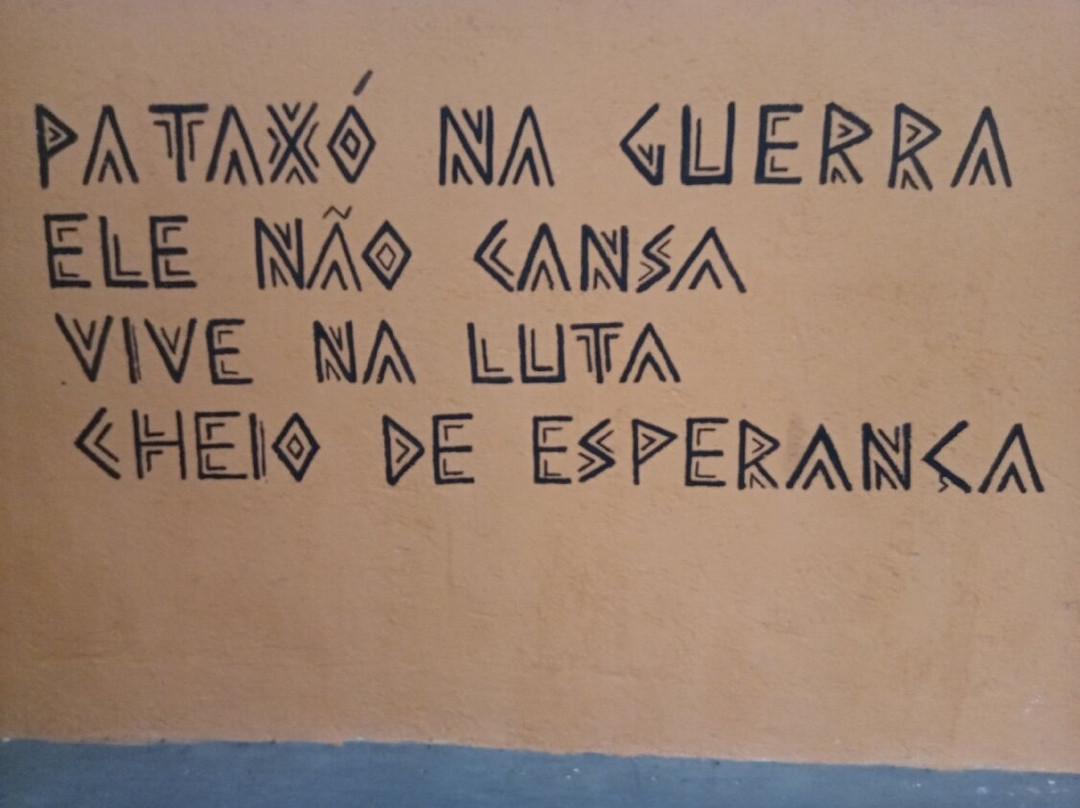 PATAXÓ NA GUERRA
ELE NÃO CANSA
VIVE NA LUTA
CHEIO DE ESPERANÇA